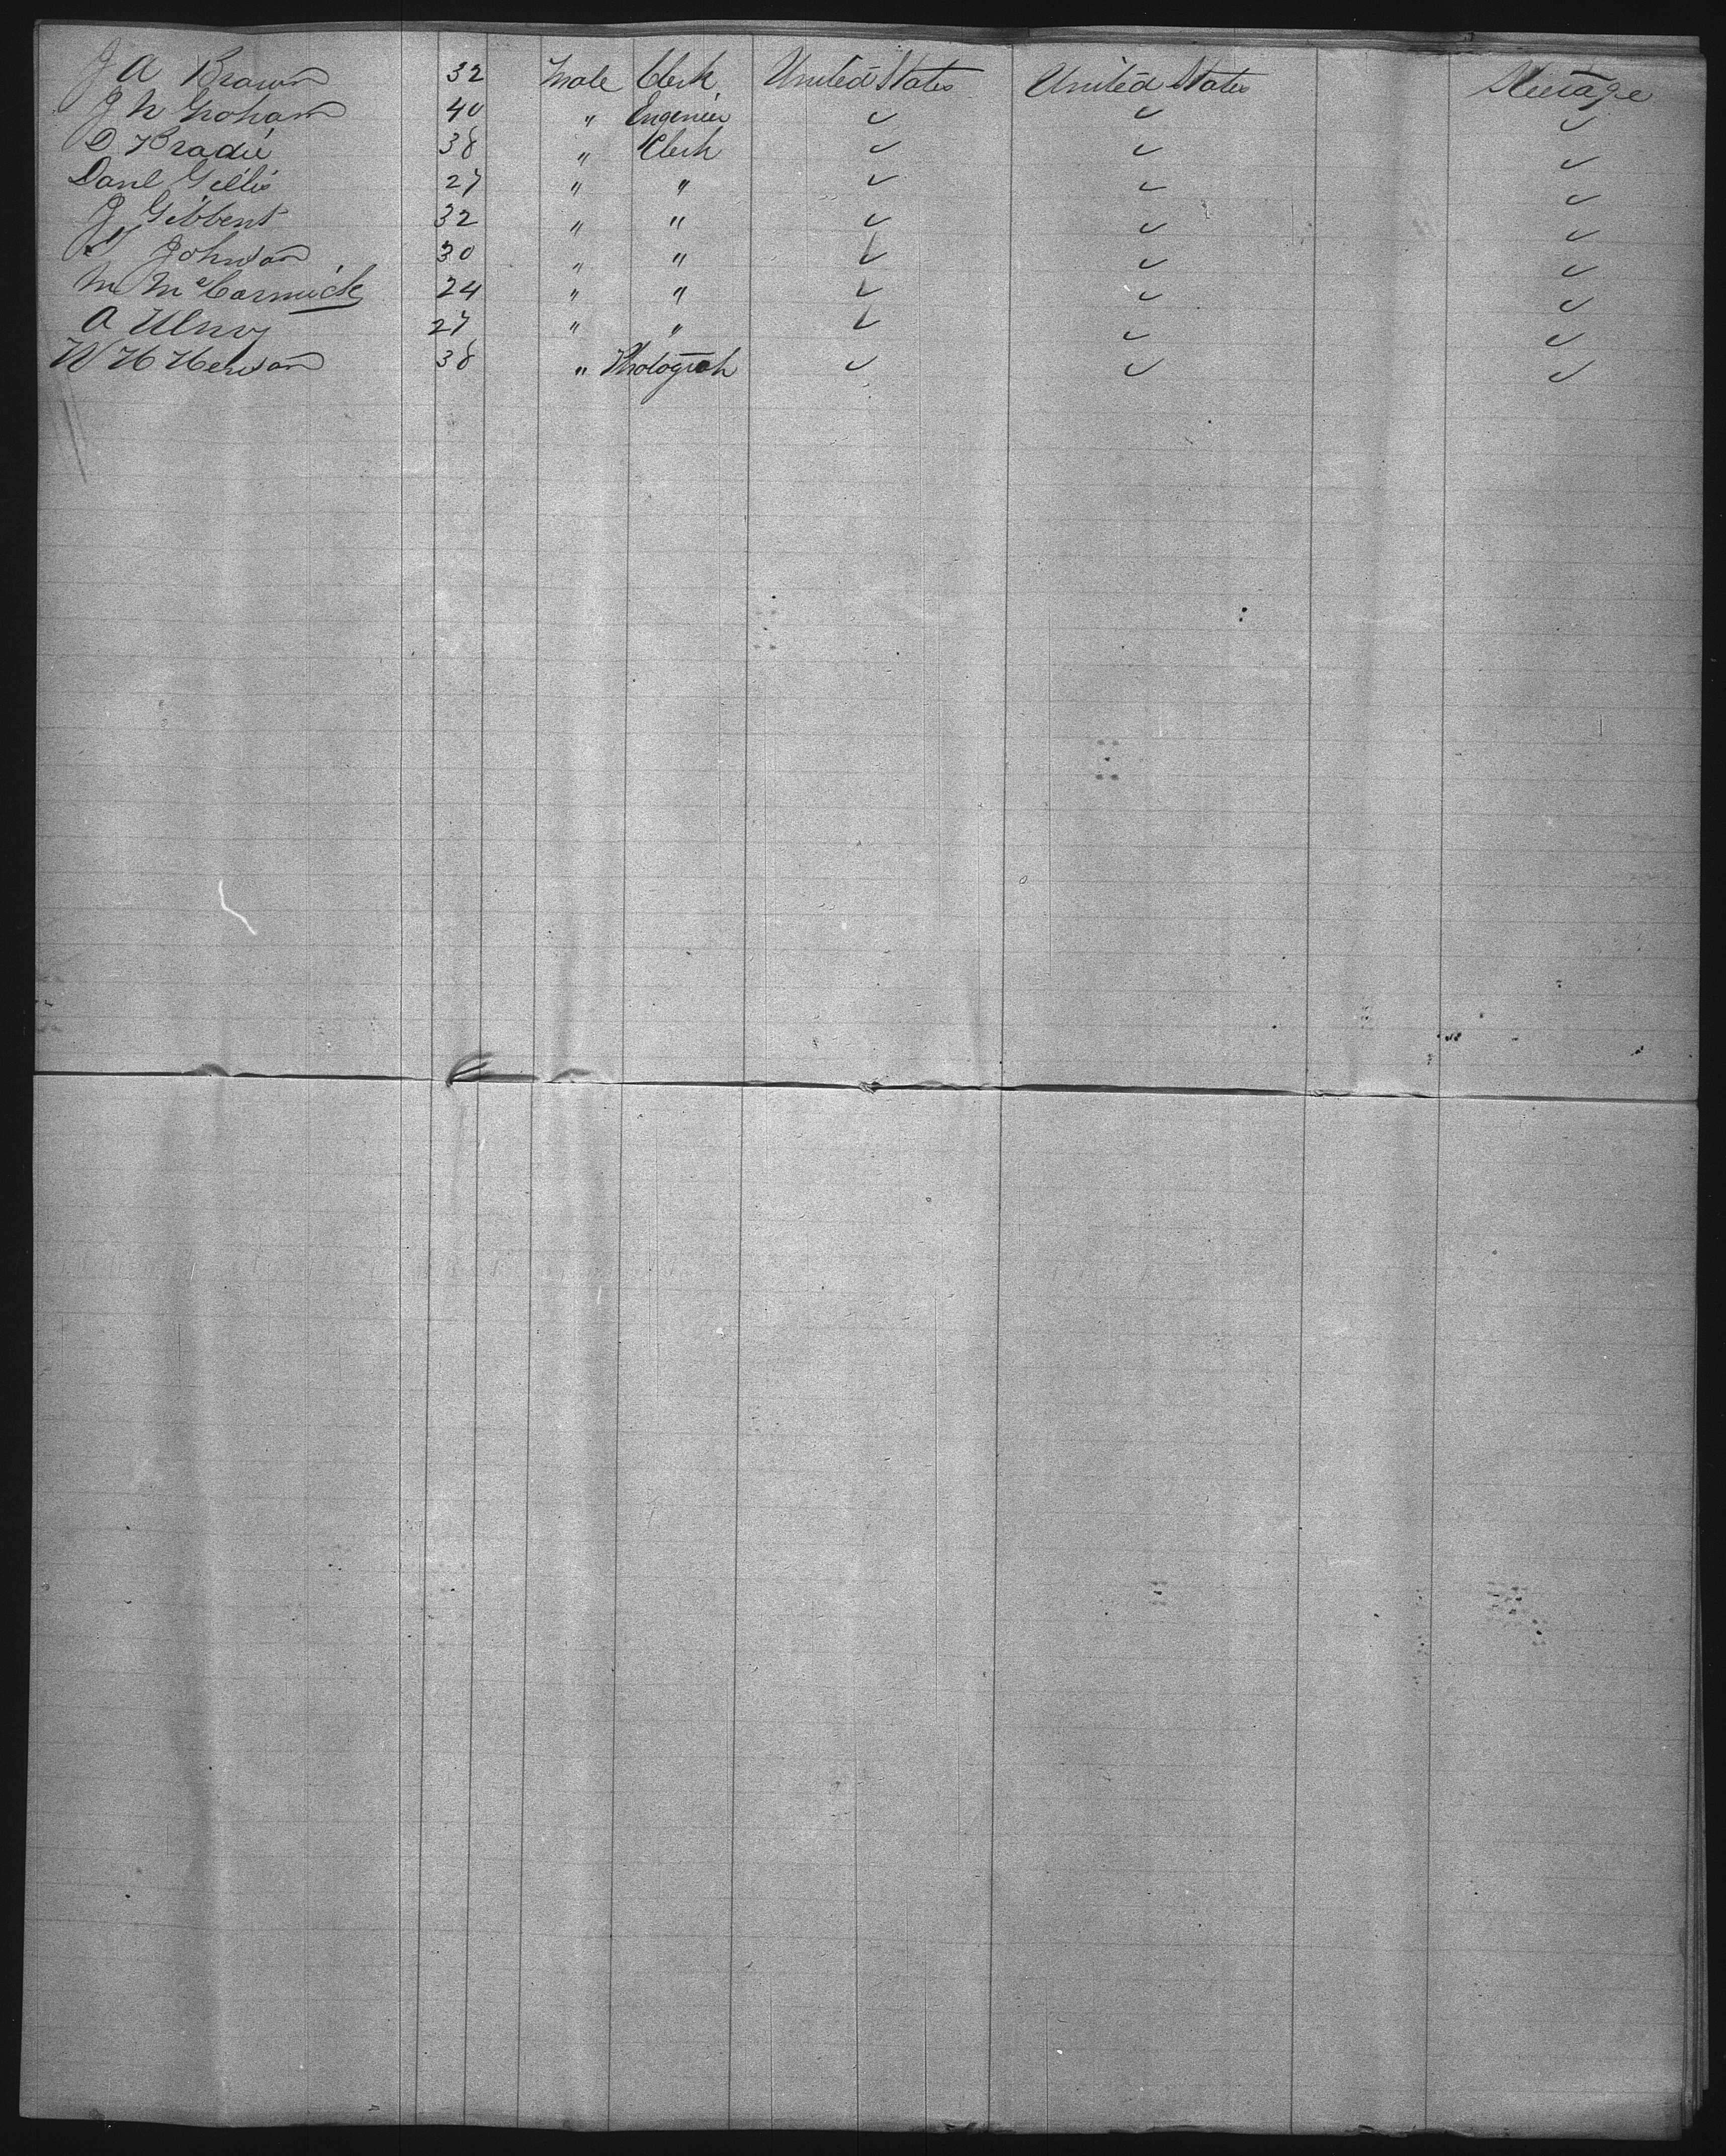 J A Brown 32 Male Clerk United States United States Steerage
J N Graham 40 " Engenier ✓ ✓ ✓
D Bradie 38 " Clerk ✓ ✓ ✓
Danl Gillis 27 " " ✓ ✓ ✓
J Gibbent 32 " " ✓ ✓ ✓
Johnson 30 " " ✓ ✓ ✓
M McCormick 24 " " ✓ ✓ ✓
A 27 " " ✓ ✓ ✓
W H 38 " Photogrph ✓ ✓ ✓